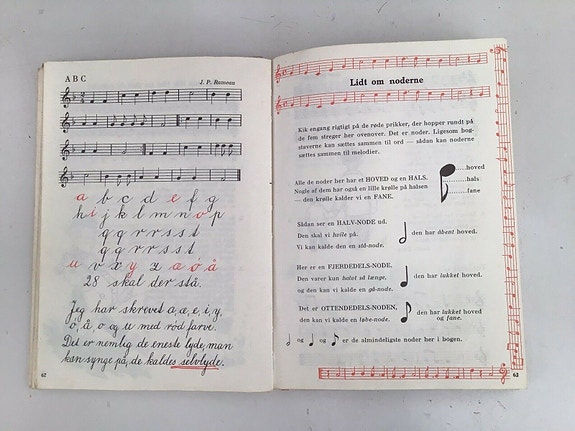 A B C
J. P. Rameau
a b c d e f g
h i j k l m n o p
q q r r s s t
q q r r s s t
u v x y z æ ø å
28 skal der stå.
Jeg har skrevet a, æ, e, i, y,
o, å, ø og u med rød farve.
Det er nemlig de eneste lyde, man
kan synge på, de kaldes selvlyde.
62
Lidt om noderne
Kik engang rigtigt på de røde prikker, der hopper rundt på
de fem streger her ovenover. Det er noder. Ligesom bog-
staverne kan sættes sammen til ord — sådan kan noderne
sættes sammen til melodier.
Alle de noder her har et HOVED og en HALS.
Nogle af dem har også en lille krølle på halsen
— den krølle kalder vi en FANE.
hoved
hals
fane
Sådan ser en HALV-NODE ud.
Den skal vi hvile på.
Vi kan kalde den en stå-node.
den har åbent hoved.
Her er en FJERDEDELS-NODE.
Den varer kun halvt så længe,
og den kan vi kalde en gå-node.
den har lukket hoved.
Det er OTTENDEDELS-NODEN,
den kan vi kalde en løbe-node.
den har lukket hoved
og fane.
og og er de almindeligste noder her i bogen.
63